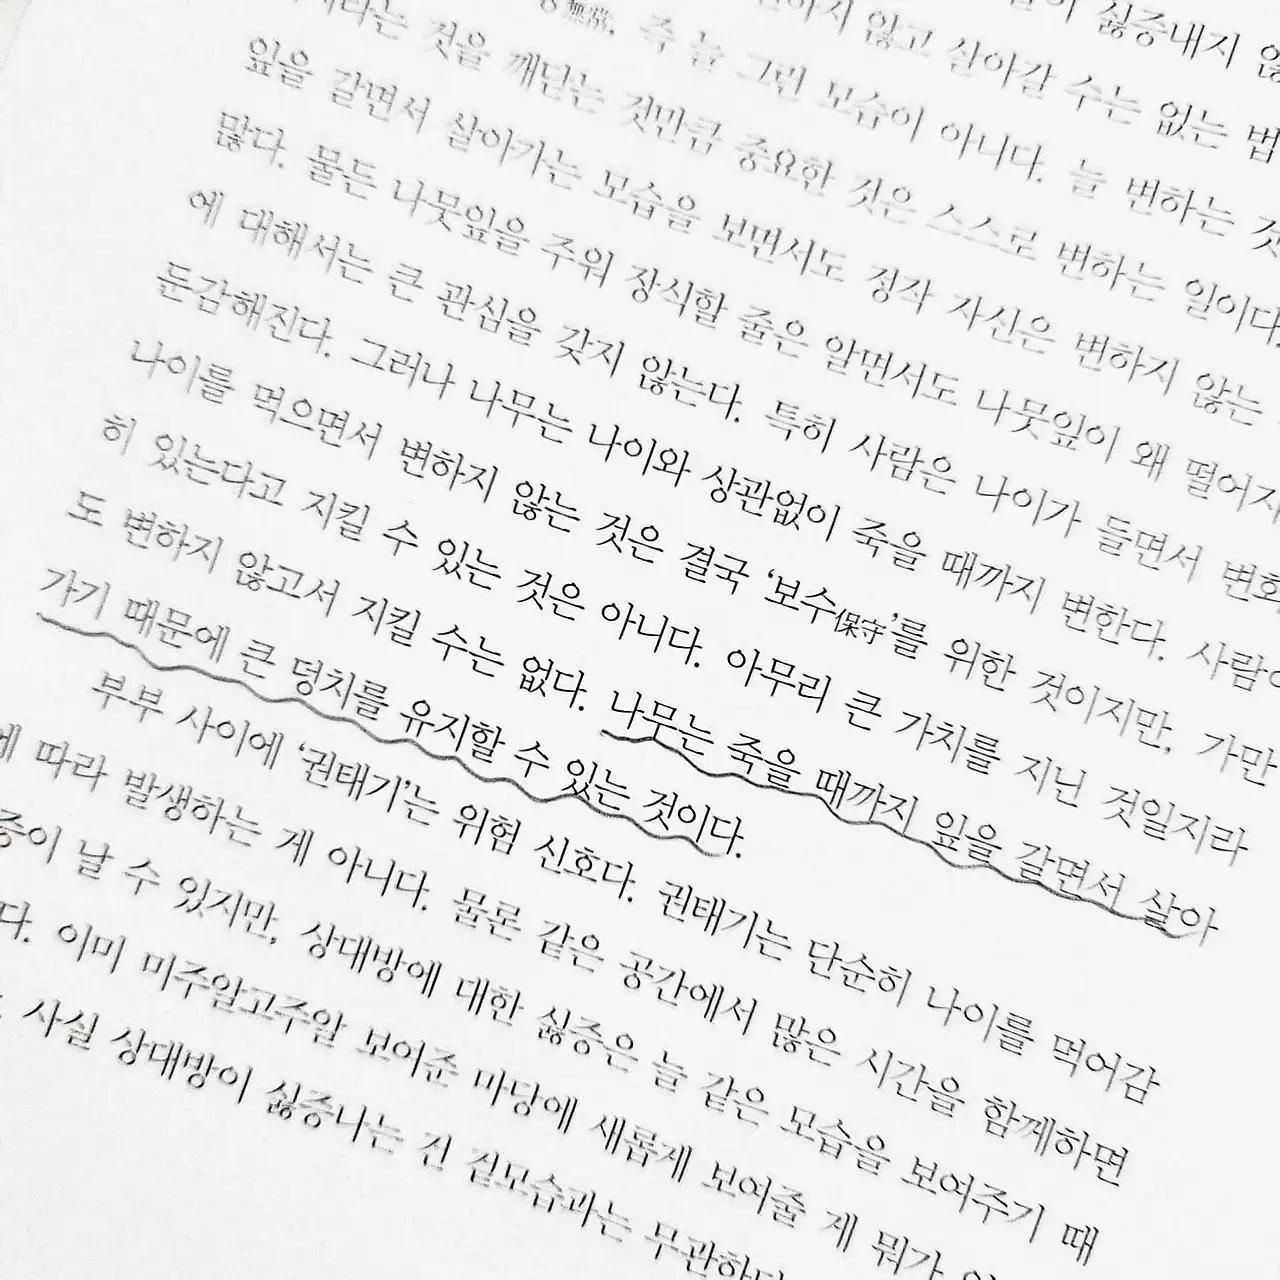 싫증내지
않고 살아갈 수는 없는 법
즉 늘 그런 모습이 아니다. 늘 변하는 것
것을 깨닫는 것만큼 중요한 것은 스스로 변하는 일이다.
잎을 갈면서 살아가는 모습을 보면서도 정작 자신은 변하지 않는
많다. 물든 나뭇잎을 주워 장식할 줄은 알면서도 나뭇잎이 왜 떨어지
에 대해서는 큰 관심을 갖지 않는다. 특히 사람은 나이가 들면서 변화
둔감해진다. 그러나 나무는 나이와 상관없이 죽을 때까지 변한다. 사람이
나이를 먹으면서 변하지 않는 것은 결국 ‘보수保守’를 위한 것이지만, 가만
히 있는다고 지킬 수 있는 것은 아니다. 아무리 큰 가치를 지닌 것일지라
도 변하지 않고서 지킬 수는 없다. 나무는 죽을 때까지 잎을 갈면서 살아
가기 때문에 큰 덩치를 유지할 수 있는 것이다.
부부 사이에 ‘권태기’는 위험 신호다. 권태기는 단순히 나이를 먹어감
에 따라 발생하는 게 아니다. 물론 같은 공간에서 많은 시간을 함께하면
증이 날 수 있지만, 상대방에 대한 싫증은 늘 같은 모습을 보여주기 때
다. 이미 미주알고주알 보여준 마당에 새롭게 보여줄 게 뭐가
사실 상대방이 싫증나는 건 겉모습과는 무관하다